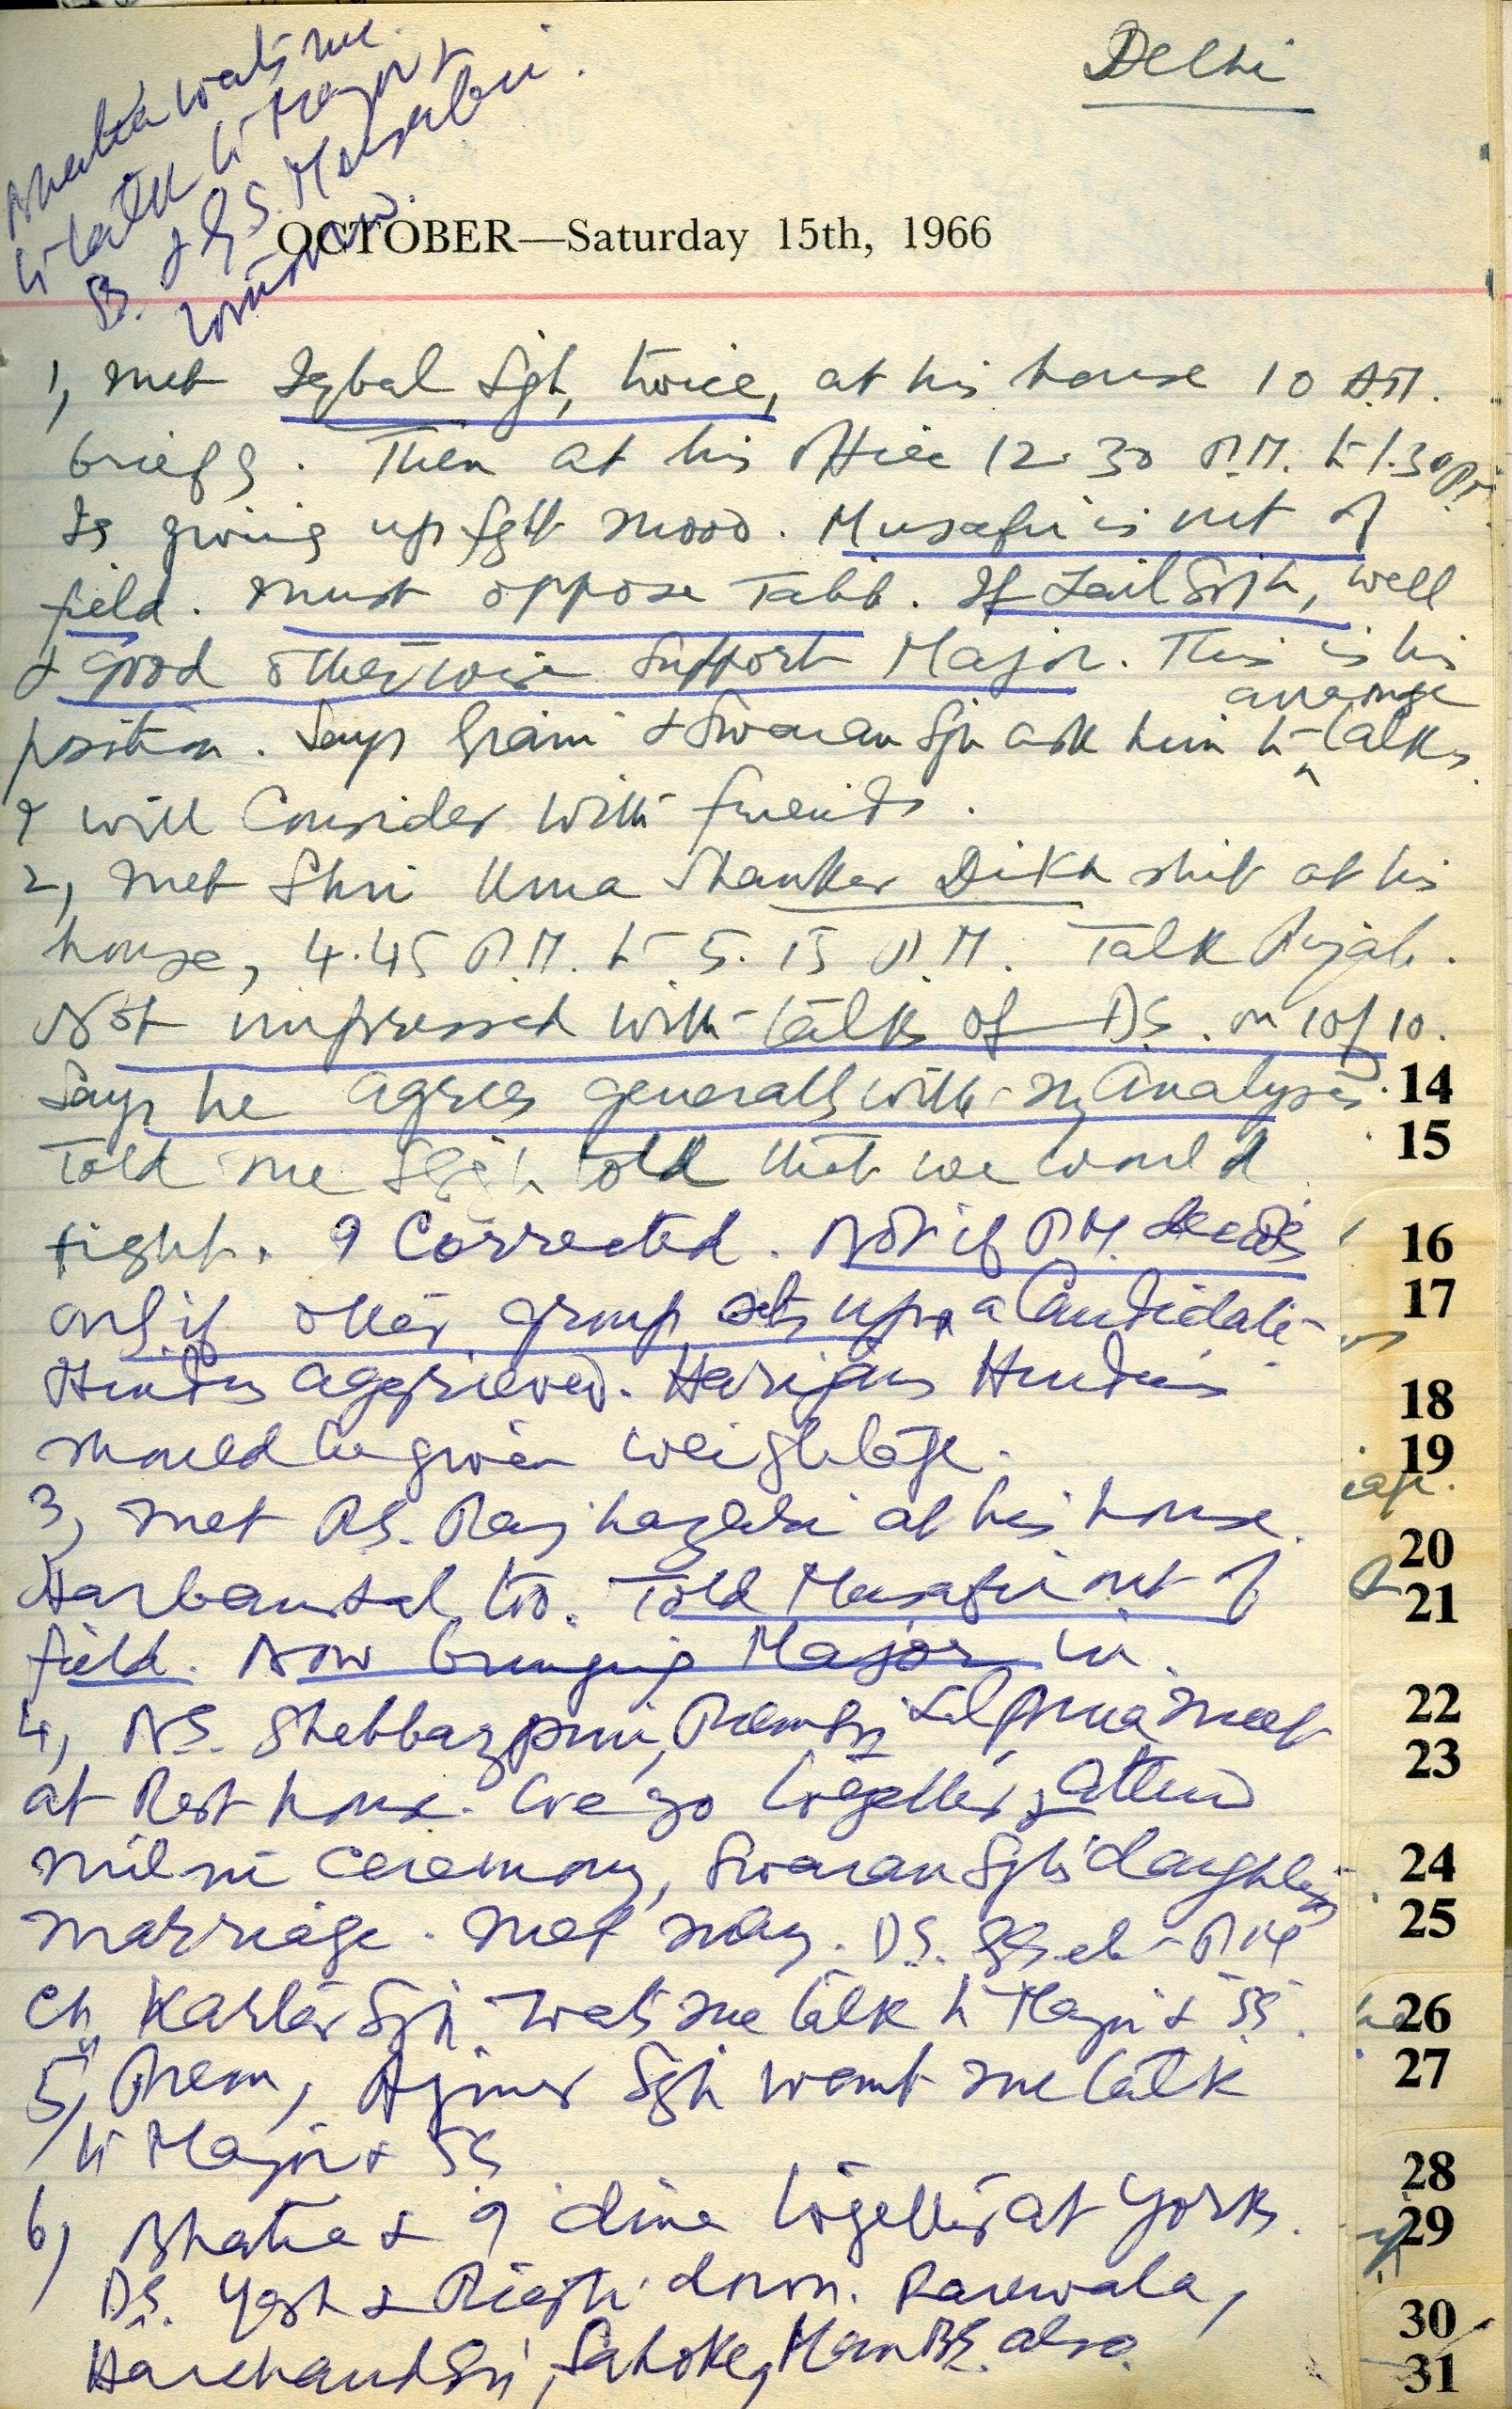 Delhi
Bhatia wants me
to talk to Major
B. & G.S. Musafir
tomorrow.
OCTOBER—Saturday 15th, 1966
1, Met Iqbal Sgh, twice, at his house 10 A.M.
briefly. Then at his office 12.30 P.M. to 1.30 P.M.
Is giving up fght mood. Musafir is out of
field. Must oppose Talib. If Zail Sigh, well
& good otherwise support Major. This is his
position. Says Giani & Swaran Sgh ask him to arrange talks.
I will consider with friends.
2, Met Shri Uma Shanker Dikhshit at his
house, 4.45 P.M. to 5.15 P.M. Talk Punjab.
Not impressed with talks of D.S. on 10/10.
Says he agrees generally with my analysis.
Told me told that we would
fight. I corrected. Not if P.M. decides
only if other group sets up a candidate
Hindus aggrieved. Harijans Hindus
should be given weightage.
3, Met at his house.
Harbanslal too. Told Musafir out of
field. Now bringing Major in.
4, Prem Sgh meet
at Rest house. We go together & attend
milni ceremony, Swaran Sgh's daughter's
marriage. Met many. D.S.
Ch Kartar Sgh wants me talk to Major & SS.
5, Prem, Ajmer Sgh want me talk
to Major & SS
6, Bhatia & I dine together at York.
D.S. Yash & down. Rarewala,
Harchand Sgh, Sahoke, Man BS. also.
14
15
16
17
18
19
20
21
22
23
24
25
26
27
28
29
30
31